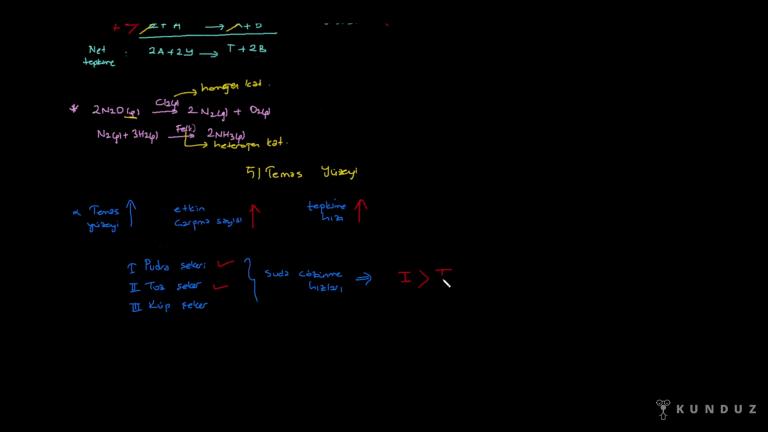 Net tepkime : 2A + 2Y → T + 2B
homojen kat.
* 2N2O(g) Cl2(g) → 2N2(g) + O2(g)
N2(g) + 3H2(g) Fe(k) → 2NH3(g)
→ heterojen kat.
5) Temas Yüzeyi
Temas yüzeyi ↑ etkin çarpışma sayısı ↑ tepkime hızı ↑
I Pudra şekeri ✓
II Toz şeker ✓
III Küp şeker
} Suda çözünme hızları ⇒ I >
KUNDUZ